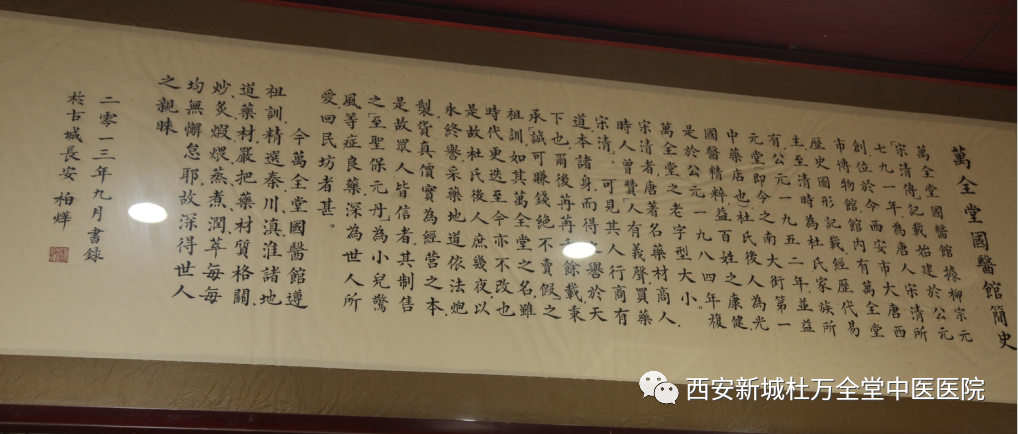 萬全堂國醫館簡史
萬全堂國醫館據柳宗元
宋清傳記載始建於公元
七九一年為唐人宋清所
創位於今西安市大唐西
市博物館館內有萬全堂
歷史圖形記載經歷代易
主至清時為杜氏家族所
有公元一九五二年並益
元堂即今之南大街第一
中藥店也杜氏後人為光
國醫精粹益百姓之康健
是於公元一九八四年複
萬全堂之老字型大小
宋清者唐著名藥材商人
時人曾贊人有義聲買藥
宋清可見其人行商有
道本諸身而得譽於天
下也爾後苒苒餘載秉
承誠可賺錢絕不賣假之
祖訓如其萬全堂之名雖
時代更迭至今亦不改也
是故杜氏後人庶幾夜以
永終譽采藥地道依法炮
製貨真價實為經營之本
是故眾人皆信者其制售
之至聖保元丹為小兒驚
風等症良藥深為世人所
愛回民坊者甚。
今萬全堂國醫館遵
祖訓精選秦川滇淮諸地
道藥材嚴把藥材質格關
炒炙煅煨蒸煮潤萃每每
均無懈怠耶故深得世人
之親睞
二零一三年九月書錄
於古城長安 柏燁
西安新城杜万全堂中医医院